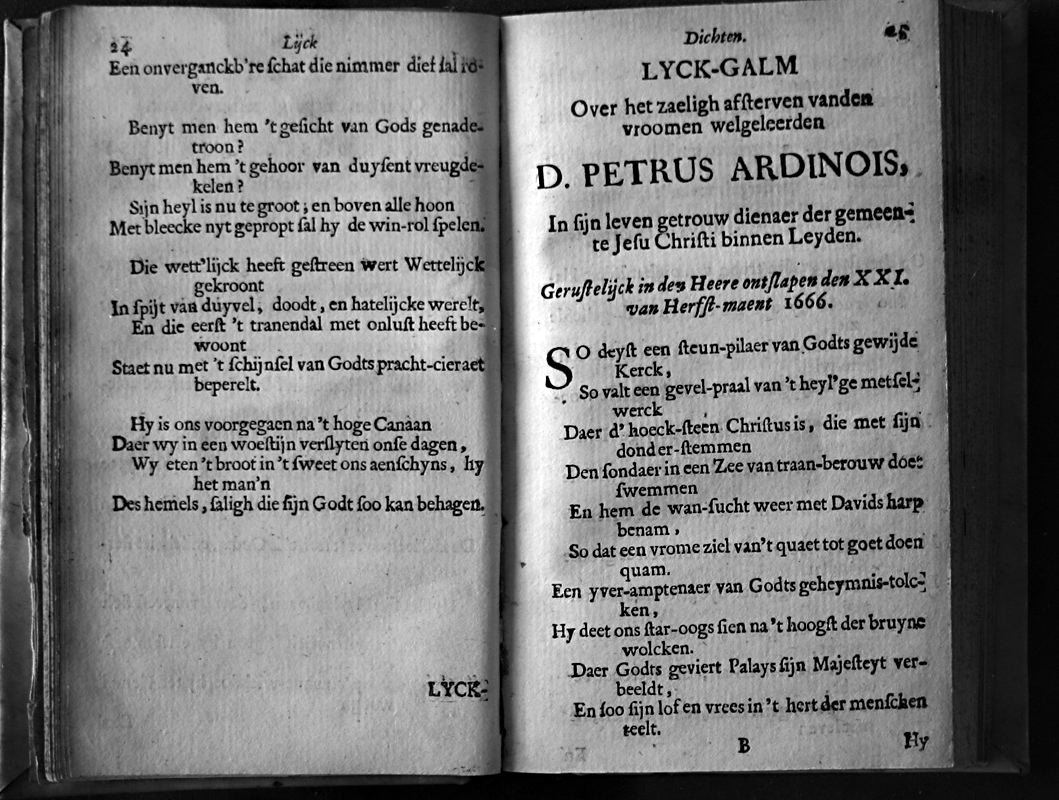 24
Lijck
Een onverganckb're schat die nimmer dief sal ro-
ven.
Benyt men hem 't gesicht van Gods genade-
troon?
Benyt men hem 't gehoor van duysent vreugde-
kelen?
Sijn heyl is nu te groot; en boven alle hoon
Met bleecke nyt gepropt sal hy de win-rol spelen.
Die wett'lijck heeft gestreen wert Wettelijck
gekroont
In spijt van duyvel, doodt, en hatelijcke werelt,
En die eerst 't tranendal met onlust heeft be-
woont
Staet nu met 't schijnsel van Godts pracht-cieraet
beperelt.
Hy is ons voorgegaen na 't hoge Canaan
Daer wy in een woestijn verslyten onse dagen,
Wy eten 't broot in 't sweet ons aenschyns, hy
het man'n
Des hemels, saligh die sijn Godt soo kan behagen.
LYCK-
Dichten.
25
LYCK-GALM
Over het zaeligh afsterven vanden
vroomen welgeleerden
D. PETRUS ARDINOIS,
In sijn leven getrouw dienaer der gemeen-
te Jesu Christi binnen Leyden.
Gerustelijck in den Heere ontslapen den XXI.
van Herfst-maent 1666.
SO deyst een steun-pilaer van Godts gewijde
Kerck,
So valt een gevel-praal van 't heyl'ge metsel-
werck
Daer d' hoeck-steen Christus is, die met sijn
donder-stemmen
Den sondaer in een Zee van traan-berouw doet
swemmen
En hem de wan-sucht weer met Davids harp
benam,
So dat een vrome ziel van't quaet tot goet doen
quam.
Een yver-amptenaer van Godts geheymnis-tolc-
ken,
Hy deet ons star-oogs sien na 't hoogst der bruyne
wolcken.
Daer Godts geviert Palays sijn Majesteyt ver-
beeldt,
En soo sijn lof en vrees in 't hert der menschen
teelt.
B
Hy